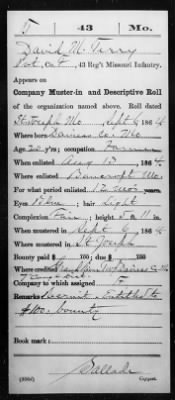 T 43 Mo.
David M. Terry
Pvt., Co. F, 43 Reg't Missouri Infantry.
Appears on
Company Muster-in and Descriptive Roll
of the organization named above. Roll dated
St. Joseph Mo Sept 6, 1864
Where born Daviess Co. Mo
Age 20 y'rs; occupation Farmer
When enlisted Aug 13, 1864
Where enlisted Bancroft Mo.
For what period enlisted 12 mo's years.
Eyes; hair Light
Complexion Fair; height 5 ft. 11 in.
When mustered in Sept 6, 1864
Where mustered in St. Joseph
Bounty paid $ 100; due $ 100
Where credited Daviess Co. Mo
Company to which assigned F
Remarks: Recruit. Entitled to
$100. bounty
Book mark:
Ballade
Copyist.